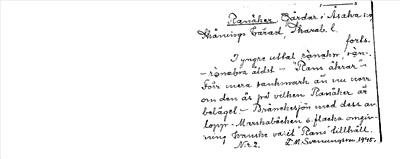 Ranåker Gårdar i Åsaka s:n
Skånings härad, Skarab. l.
forts.
I yngre uttal
äldst – "Rans åkrar" –
Förr mera sankmark än nu norr
om den ås på vilken Ranåker är
belägen – Bränekesjön med dess av-
lopp – Marskabäcken o. flacka omgiv-
ning kanske va:it Rans tillhåll.
Nr 2. L.M. Svenungsson 1945.